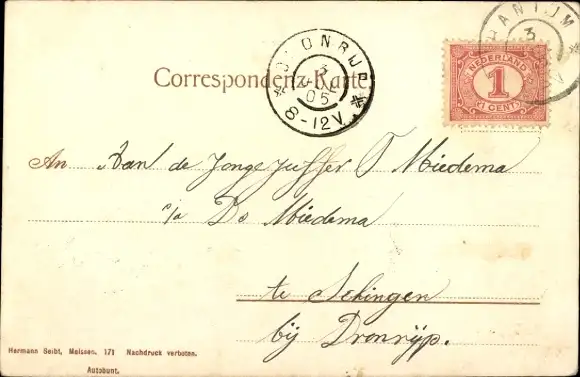 HANTUM
3
NEDERLAND
1
(1 CENT)
DRONRIJP
3
05
8-12V
Correspondenz-Karte
An Aan de Jongejuffer T Miedema
c/a Ds Miedema
te Schingen
bij Dronrijp.
Hermann Seibt, Meissen. 171 Nachdruck verboten.
Autobunt.